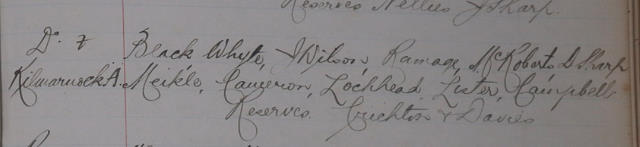 Reserves Nellies J Sharp.
Do. 7 Black Whyte, J Wilson, Ramage, McRoberts D Sharp
Kilmarnock A. Meikle, Cameron, Lochhead, Lister, Campbell
Reserves. Crichton & Davies